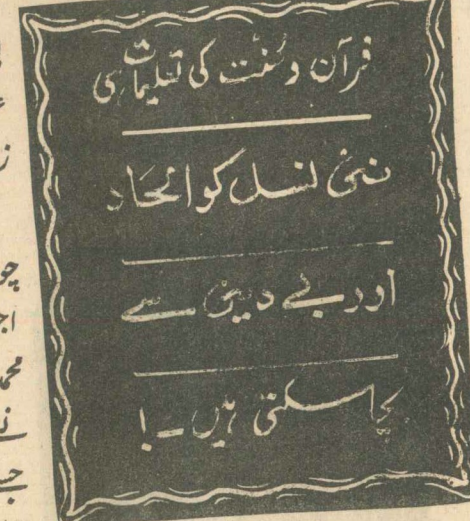 قرآن و سُنّت کی تعلیمات ہی
نئی نسل کو الحاد
اور بے دینی سے
بچا سکتی ہیں۔!